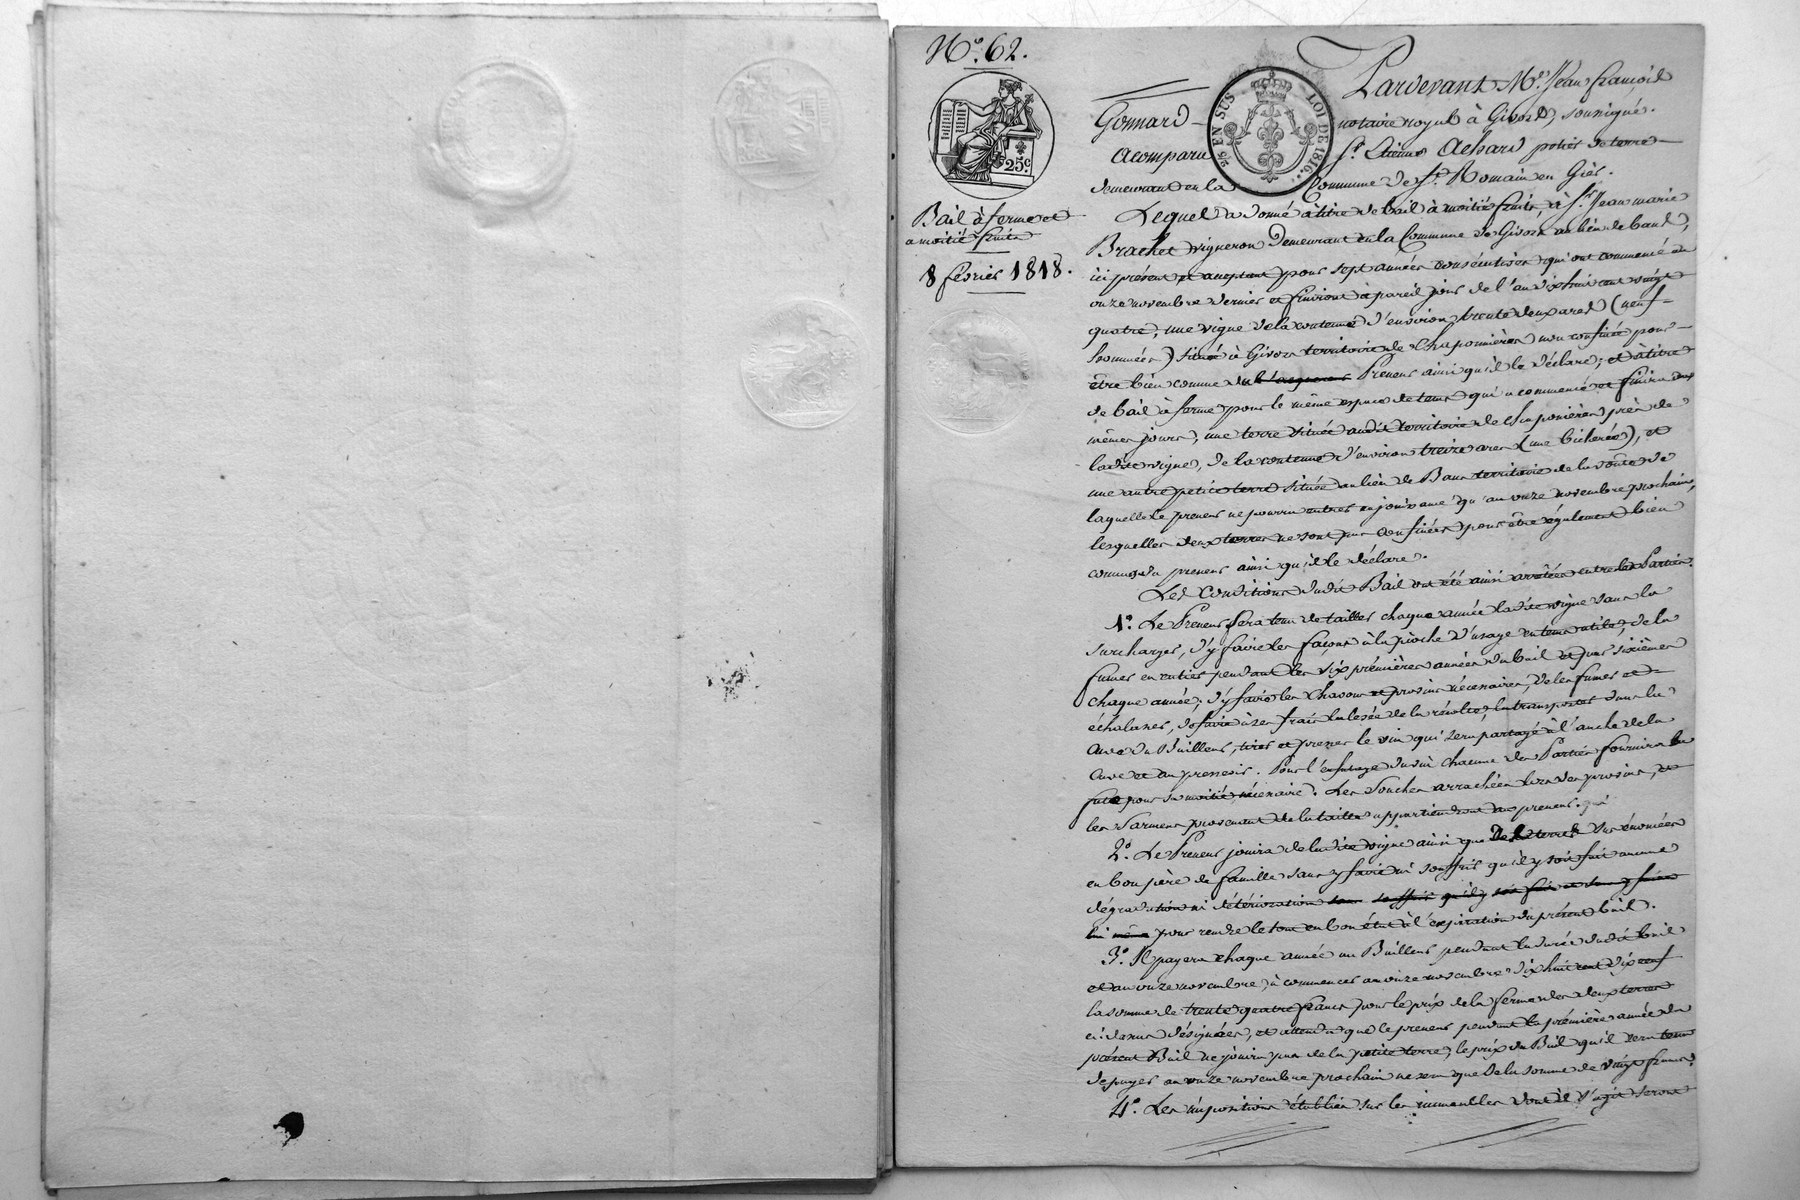 N.° 62.
25.c
Bail à ferme et
a moitié fruits
8 février 1818.
EN SUS LOI DE 1816.
Pardevant M.e Jean françois
Gonnard notaire royal à Givors, soussigné.
A comparu S.r Etienne Achard potier de terre
demeurant en la Commune de S.t Romain en Giès.
Lequel a donné à titre de bail à moitié fruits, à S.r Jean marie
Brachet vigneron demeurant en la Commune de Givors au lieu de bans,
ici présent et acceptant pour sept années consécutives qui ont commencé au
onze novembre dernier et finiront à pareil jour de l'an dix huit cent vingt
quatre, une vigne de la contenue d'environ trente deux ares (neuf
hommées) située à Givors territoire de Chaponnières non confinée pour
être bien connue du Preneur ainsi qu'il le déclare; et à titre
de bail à ferme pour le même espace de tems qui a commencé et finira aux
mêmes jours, une terre située audit territoire de Chaponières près de
ladite vigne, de la contenue d'environ treize ares (une bicherée), et
une autre petite terre située au lieu de Bans territoire de la voûte de
laquelle le preneur ne pourra entrer en jouissance qu'au onze novembre prochain,
lesquelles deux terres ne sont pas confinées pour être également bien
connues du preneur ainsi qu'il le déclare.
Les Conditions dudit Bail ont été ainsi arrêtées entre les Parties.
1.° Le Preneur sera tenu de tailler chaque année ladite vigne sans la
surcharger, d'y faire les façons à la pioche d'usage en tems utile, de la
fumer en entier pendant les six premières années du bail et par sixième
chaque année, d'y faire les chavons et provins nécessaires, de les fumer et
échalaser, de faire à ses frais la levée de la récolte, la transporter dans la
Cuve du Bailleur, tirer et presser le vin qui sera partagé à l'anche de la
Cuve et au pressoir. Pour l'enfutage du vin chacune des Parties fournira les
futs pour sa moitié nécessaire. Les Souches arrachées lors des provins, et
les Sarmens provenant de la taille appartiendront au preneur.
2.° Le Preneur jouira de ladite vigne ainsi que des terres sus énoncées
en bon père de famille sans y faire ni souffrir qu'il y soit fait aucune
dégradation ni détérioration
pour rendre le tout en bon état à l'expiration du présent bail.
3.° Il payera chaque année au Bailleur pendant la durée dudit bail
et au onze novembre, à commencer au onze novembre dix huit cent dix neuf
la somme de trente quatre francs pour le prix de la ferme des deux terres
ci-dessus désignées, et attendu que le preneur pendant la première année du
présent Bail ne jouira pas de la petite terre, le prix du Bail qu'il sera tenu
de payer au onze novembre prochain ne sera que de la somme de vingt francs.
4.° Les impositions établies sur les immeubles dont il s'agit seront